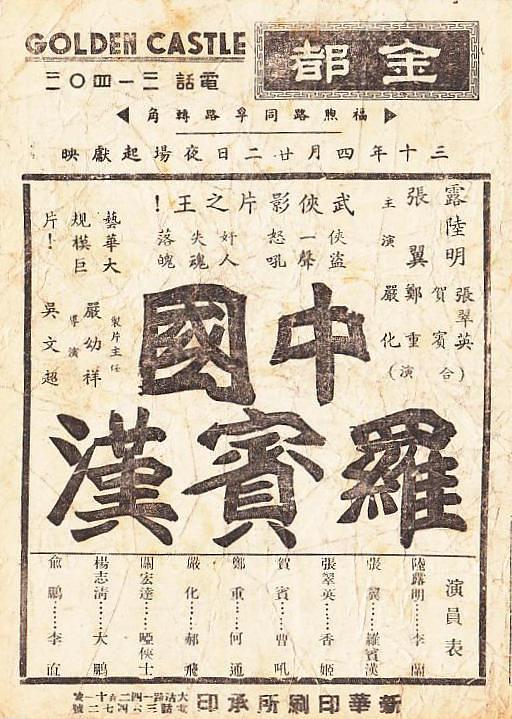 GOLDEN CASTLE
金都
電話 三一四〇二
福煦路同孚路轉角
三十年四月廿二日夜場起獻映
露陸明
張翼
主演
張翠英
賀賓
鄭重
嚴化
(合演)
武俠影片之王!
俠盜一聲怒吼
奸人失魂落魄
藝華大規模巨片!
製片主任
嚴幼祥
導演
吳文超
中國
羅賓漢
演員表
陸露明……李蘭
張翼……羅賓漢
張翠英……香姬
賀賓……曹吼
鄭重……何通
嚴化……郝飛
關宏達……啞俠士
楊志清……大鵬
俞鵬……李直
新華印刷所承印